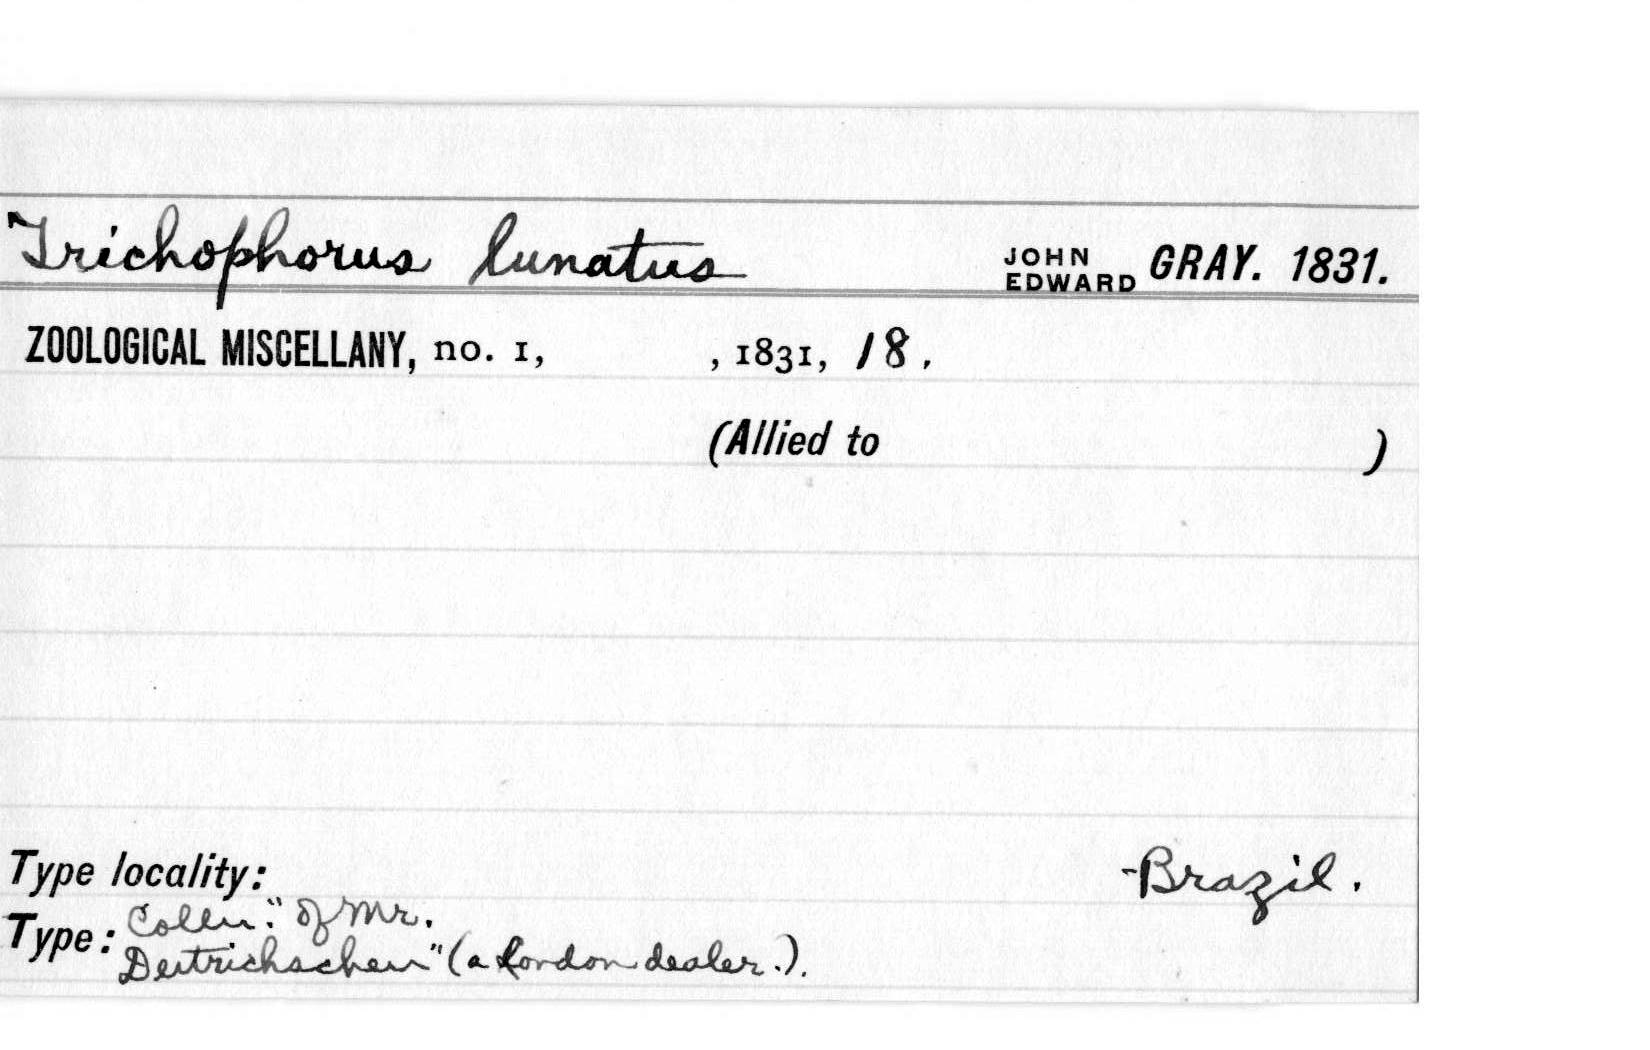 Trichophorus lunatus JOHN EDWARD GRAY. 1831.
ZOOLOGICAL MISCELLANY, no. 1, , 1831, 18.
(Allied to )
Type locality: Brazil.
Type: Colln." of Mr.
Deitrichschen" (a London dealer.).